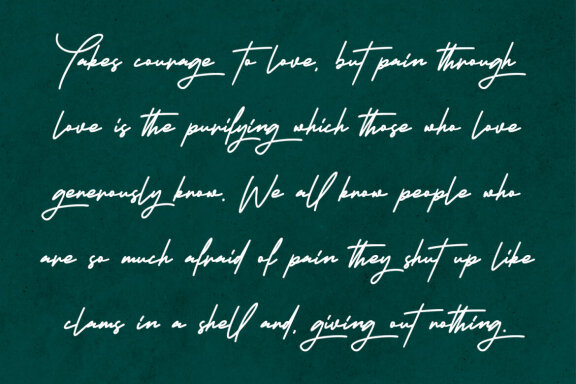 Takes courage to love, but pain through
love is the purifying which those who love
generously know. We all know people who
are so much afraid of pain they shut up like
clams in a shell and, giving out nothing.